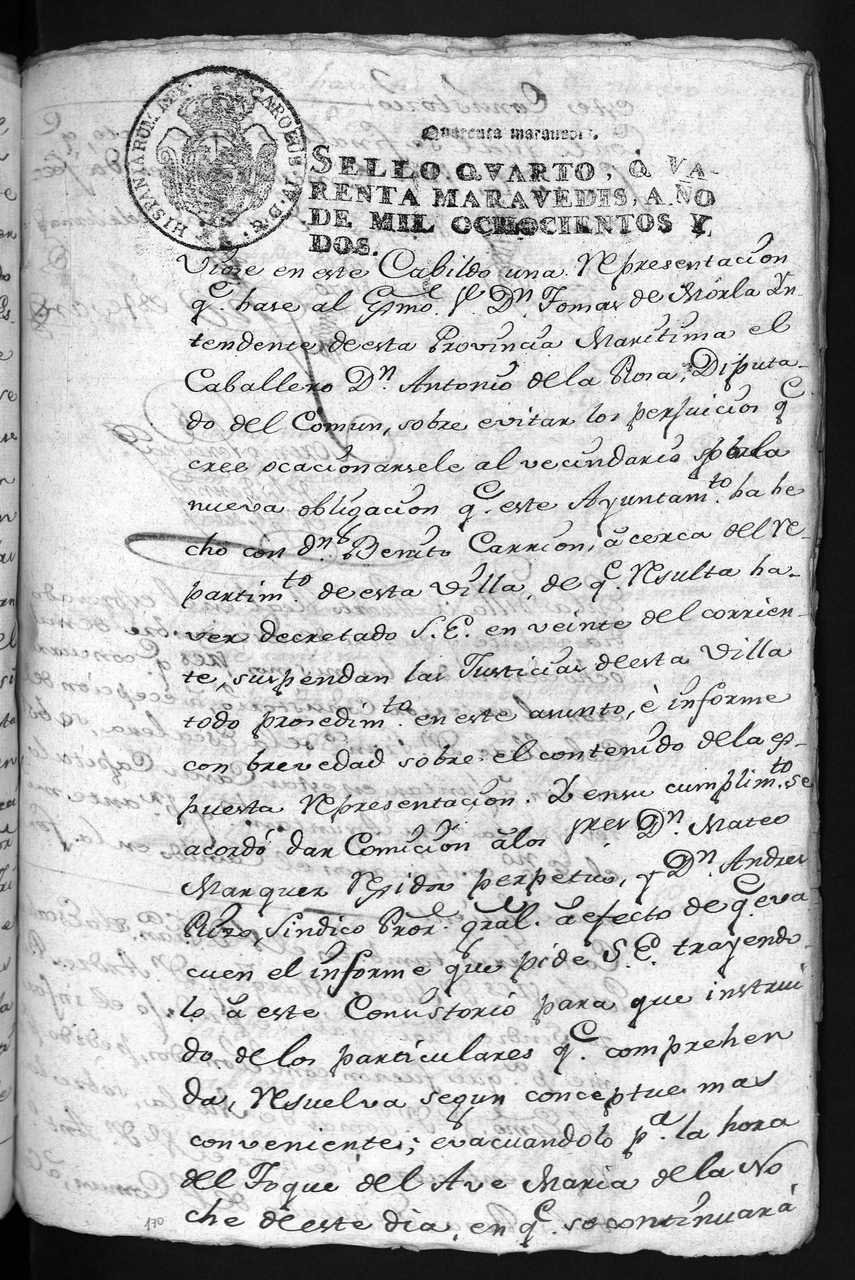 HISPANIARUM REX. CAROLUS. IV. D. G.
Quarenta maravedis.
SELLO QVARTO, QVA-
RENTA MARAVEDIS, AÑO
DE MIL OCHOCIENTOS Y
DOS.
Viose en este Cabildo una Representacion
q.e hase al Exmo. S.r D.n Tomas de Mórla Yn-
tendente de esta Provincia Maritima el
Caballero D.n Antonio de la Rosa, Diputa-
do del Comun, sobre evitar los perjuicios q.e
cree ocacionarsele al vecindario sobre la
nueva obligacion q.e este Ayuntam.to ha he
cho con d.n Benito Carrion, acerca del re-
partim.to de esta Villa, de q.e resulta ha-
ver decretado S.E. en veinte del corrien-
te, suspendan las Justicias de esta Villa
todo prosedim.to en este asunto, è informe
con brevedad sobre el contenido de la ex-
puesta representacion. Y en su cumplim.to se
acordó dar Comicion à los s.res D.n Mateo
Marquez Regidor perpetuo, y D.n Andres
Rizo, Sindico Pror. gral. a efecto de q.e eva
cuen el informe que pide S.E. trayendo
lo a este Consistorio para que instrui
do de los particulares q.e comprehen
da, resuelva segun conceptue mas
conveniente; evacuandolo p.a la hora
del Toque del Ave Maria de la No
che de este dia, en q.e se continuará
170